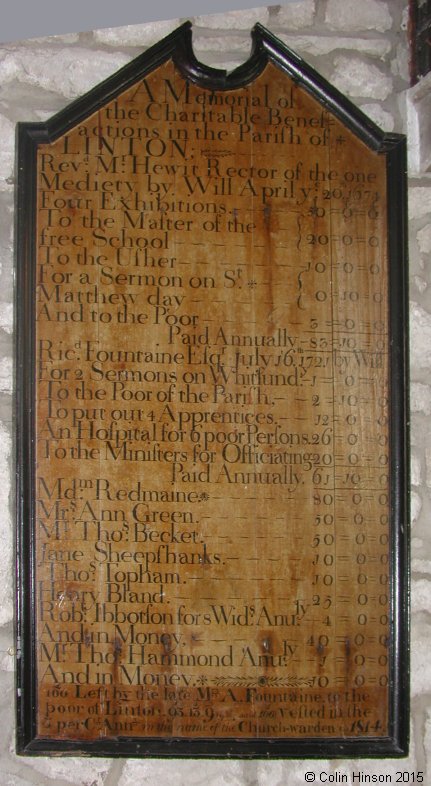 A Memorial of
the Charitable Benef-
actions in the Parish of
LINTON,
Revd. Mr. Hewit Rector of the one
Mediety by Will April ye. 20, 1674
Four Exhibitions 50=0=0
To the Master of the
free School 20=0=0
To the Usher 10=0=0
For a Sermon on St.
Matthew day 0=10=0
And to the Poor 3=0=0
Paid Annually 83=10=0
Ricd. Fountaine Esqr. July 16th. 1721 by Will
For 2 Sermons on Whitsundy. 1=0=0
To the Poor of the Parish. 2=10=0
To put out 4 Apprentices. 12=0=0
An Hospital for 6 poor Persons. 26=0=0
To the Ministers for Officiating 20=0=0
Paid Annually. 61=10=0
Mdm. Redmaine. 80=0=0
Mrs. Ann Green. 50=0=0
Mr. Thos. Becket. 50=0=0
Jane Sheepshanks. 10=0=0
Thos. Topham. 10=0=0
Henry Bland. 25=0=0
Robt. Ibbotson for 5 Wids. Anu.ly 4=0=0
And in Money. 40=0=0
Mr. Thos. Hammond Anu.ly 1=0=0
And in Money. 10=0=0
100 Left by the late Mrs. A. Fountaine, to the
poor of Linton and vested in the
per Ct. in the name of the Church-warden 1814.
© Colin Hinson 2015